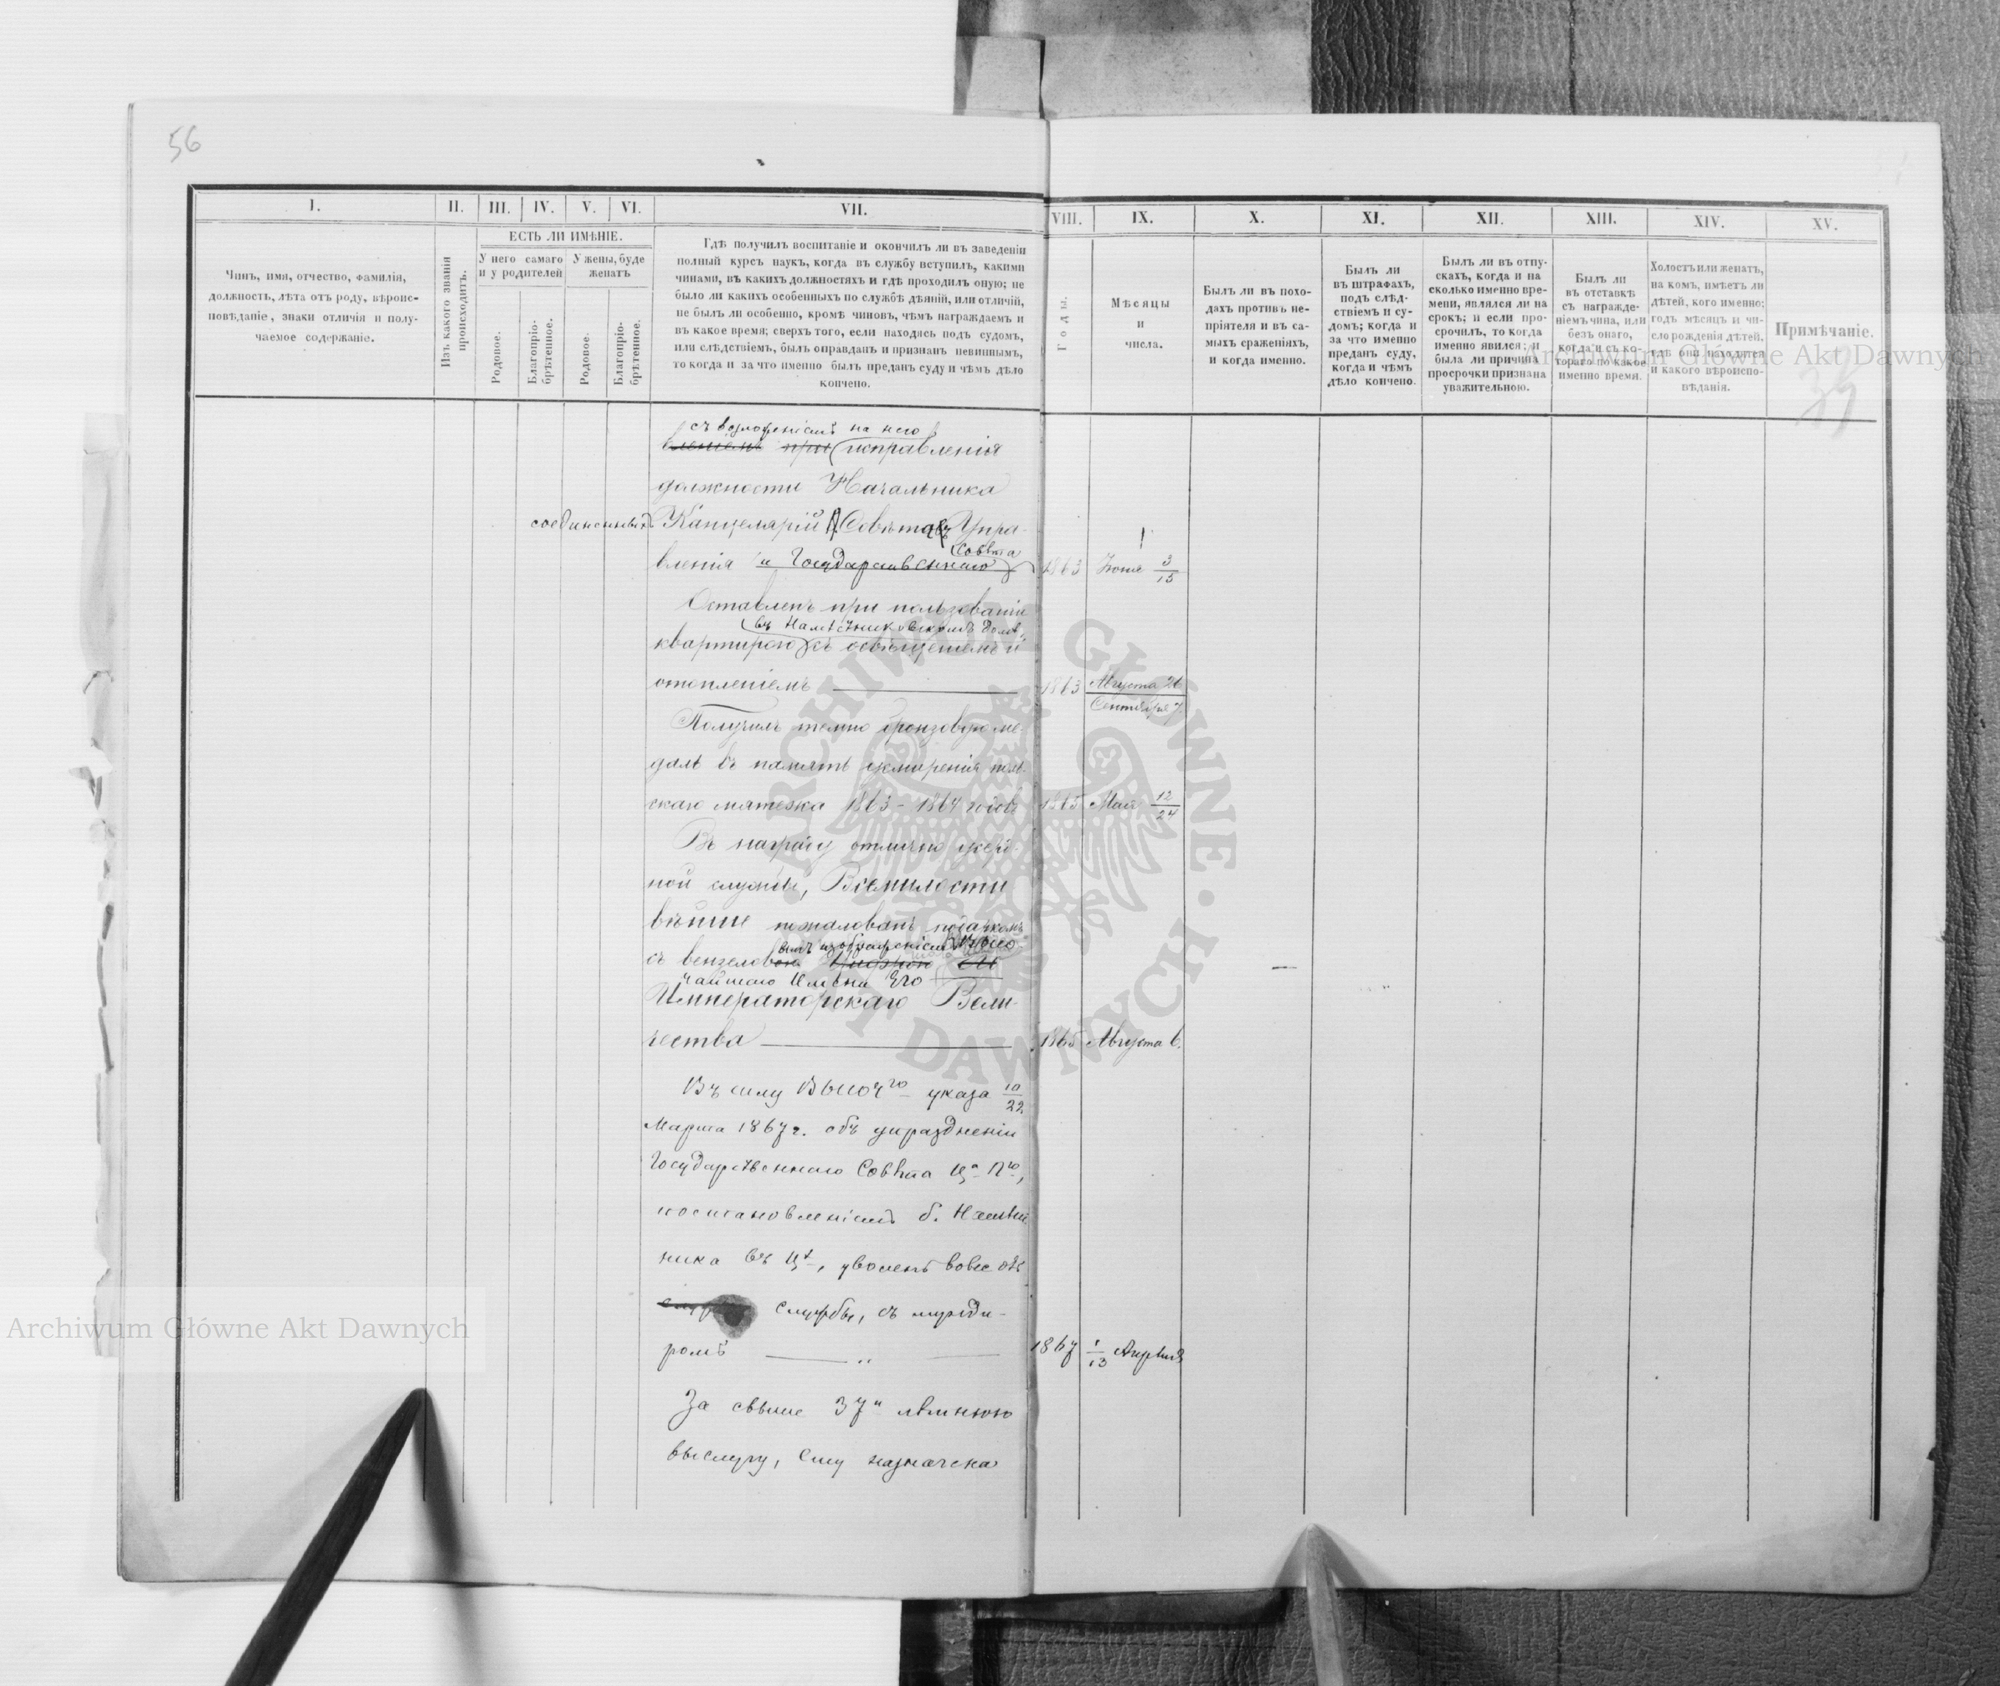 56
I.
II.
III.
IV.
V.
VI.
VII.
VIII.
IX.
X.
XI.
XII.
XIII.
XIV.
XV.
Чинъ, имя, отчество, фамилія,
должность, лѣта отъ роду, вѣроис-
повѣданіе, знаки отличія и полу-
чаемое содержаніе.
Изъ какого званія
происходитъ.
ЕСТЬ ЛИ ИМѢНІЕ.
У него самаго
и у родителей
У жены, буде
женатъ
Родовое.
Благопріо-
брѣтенное.
Родовое.
Благопріо-
брѣтенное.
Гдѣ получилъ воспитаніе и окончилъ ли въ заведеніи
полный курсъ наукъ, когда въ службу вступилъ, какими
чинами, въ какихъ должностяхъ и гдѣ проходилъ оную; не
было ли какихъ особенныхъ по службѣ дѣяній, или отличій,
не былъ ли особенно, кромѣ чиновъ, чѣмъ награждаемъ и
въ какое время; сверхъ того, если находясь подъ судомъ,
или слѣдствіемъ, былъ оправданъ и признанъ невиннымъ,
то когда и за что именно былъ преданъ суду и чѣмъ дѣло
кончено.
Годы.
Мѣсяцы
и
числа.
Былъ ли въ похо-
дахъ противъ не-
пріятеля и въ са-
мыхъ сраженіяхъ,
и когда именно.
Былъ ли
въ штрафахъ,
подъ слѣд-
ствіемъ и су-
домъ; когда и
за что именно
преданъ суду,
когда и чѣмъ
дѣло кончено.
Былъ ли въ отпу-
скахъ, когда и на
сколько именно вре-
мени, являлся ли на
срокъ; и если про-
срочилъ, то когда
именно явился; и
была ли причина
просрочки признана
уважительною.
Былъ ли
въ отставкѣ
съ награжде-
ніемъ чина, или
безъ онаго,
когда и съ ко-
тораго по какое
именно время.
Холостъ или женатъ,
на комъ, имѣетъ ли
дѣтей, кого именно;
годъ мѣсяцъ и чи-
сло рожденія дѣтей,
гдѣ они находятся
и какого вѣроиспо-
вѣданія.
Примѣчаніе.
съ возложеніемъ на него
исправленія
должности Начальника
соединенныхъ Канцелярій Совѣтовъ Упра-
Совѣта
вленія и Государственнаго 1863 Іюня 3/15
Оставленъ при пользованіи
въ Намѣстниковскомъ домѣ
квартирою съ освѣщеніемъ и
отопленіемъ 1863 Августа 26 Сентября 7
Получилъ темно бронзовую ме-
даль въ память усмиренія поль-
скаго мятежа 1863 - 1864 годовъ 1865 Мая 12/24
Въ награду отлично усерд-
ной службы, Всемилости
вѣйше пожалованъ подаркомъ
вымъ изображеніемъ Высо
съ вензело
чайшаго Имени Его
Императорскаго Вели-
чества 1865 Августа 6.
Въ силу Высочго указа 10/22
Марта 1867 г. объ упраздненіи
Государственнаго Совѣта Ца Пго,
постановленіемъ б. Намѣст
ника въ Цѣ, уволенъ вовсе отъ
службы, съ мунди-
ромъ 1867 1/13 Апрѣля
За свыше 37и лѣтнюю
выслугу, ему назначена
Archiwum Główne Akt Dawnych
Archiwum Główne Akt Dawnych
ARCHIWUM GŁÓWNE AKT DAWNYCH